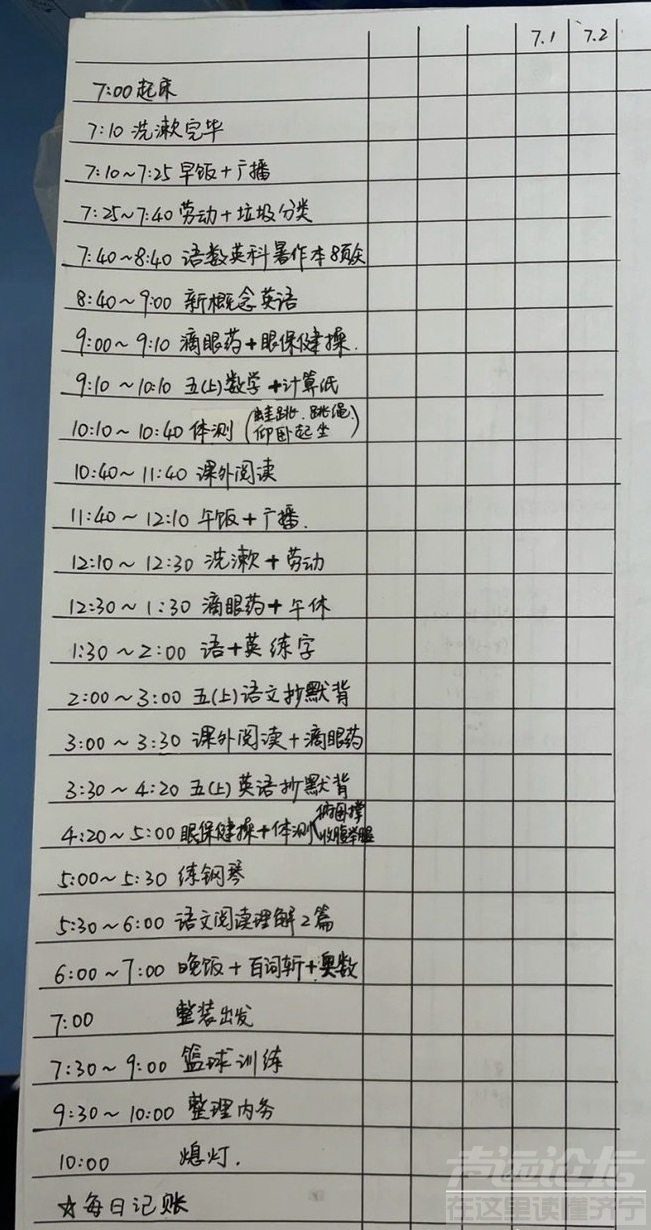 7.1 7.2
7:00 起床
7:10 洗漱完毕
7:10~7:25 早饭+广播
7:25~7:40 劳动+垃圾分类
7:40~8:40 语数英科暑作本8页
8:40~9:00 新概念英语
9:00~9:10 滴眼药+眼保健操.
9:10~10:10 五(上)数学+计算纸
10:10~10:40 体测(蛙跳.跳绳.仰卧起坐)
10:40~11:40 课外阅读
11:40~12:10 午饭+广播.
12:10~12:30 洗漱+劳动
12:30~1:30 滴眼药+午休
1:30~2:00 语+英练字
2:00~3:00 五(上)语文抄默背
3:00~3:30 课外阅读+滴眼药
3:30~4:20 五(上)英语抄默背
4:20~5:00 眼保健操+体测(俯卧撑 收腹举腿
5:00~5:30 练钢琴
5:30~6:00 语文阅读理解2篇
6:00~7:00 晚饭+百词斩+奥数
7:00 整装出发
7:30~9:00 篮球训练
9:30~10:00 整理内务
10:00 熄灯.
☆每日记账
声远论坛
在这里读懂济宁